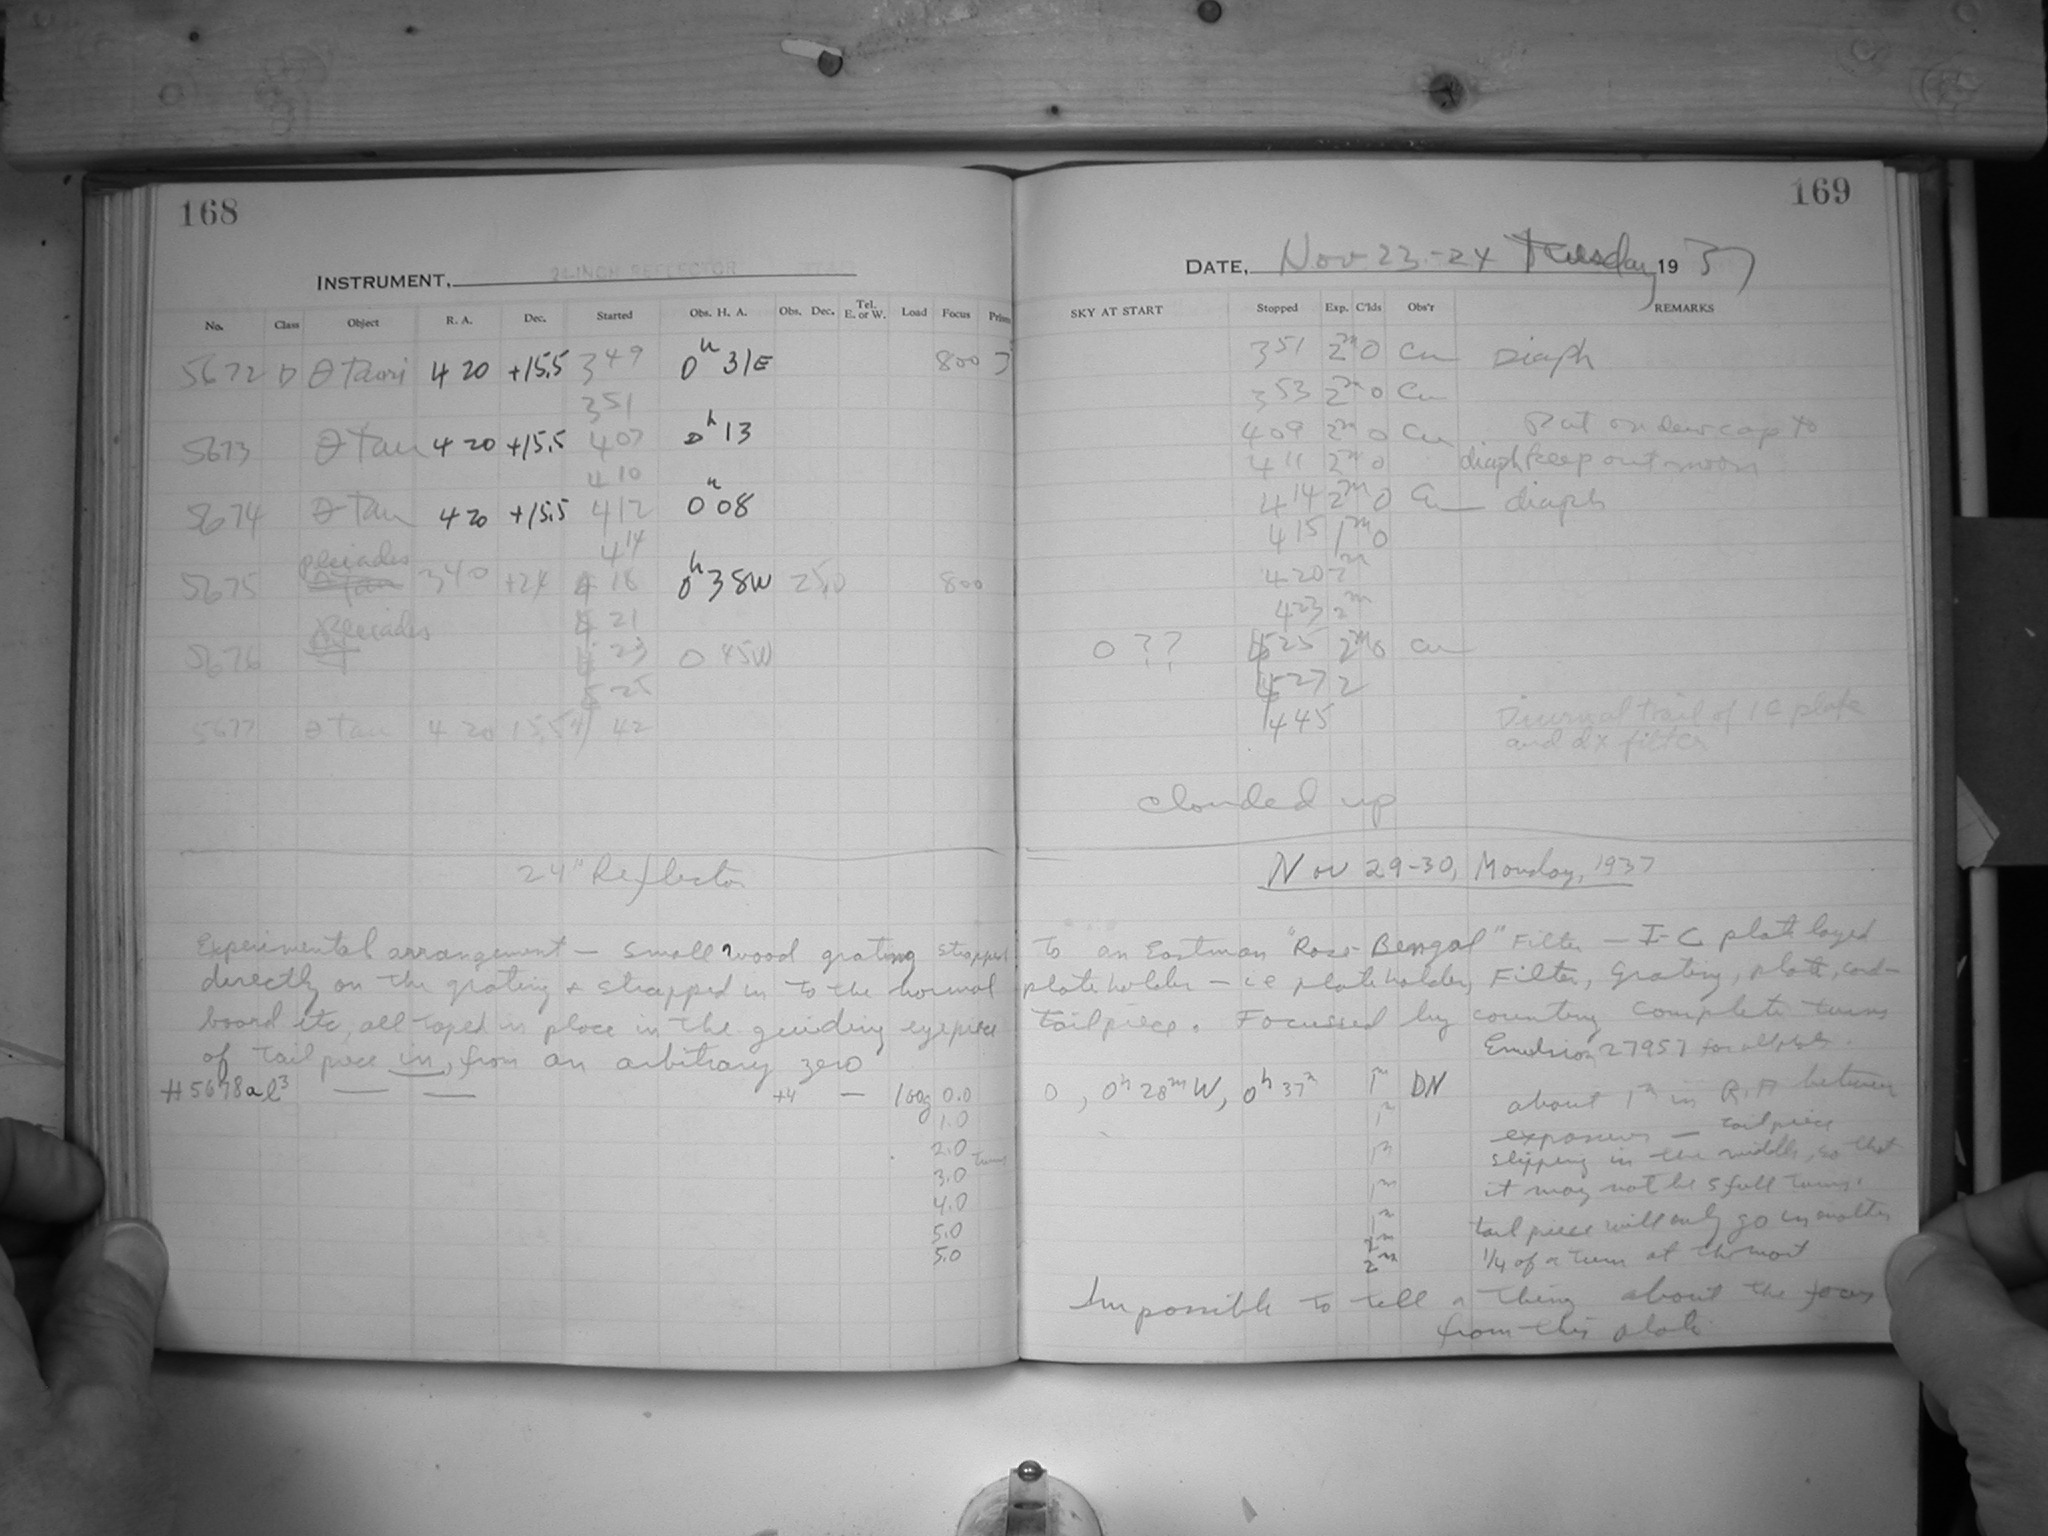 168
169
INSTRUMENT, 24-INCH REFLECTOR
DATE, Nov 23-24 Tuesday 1937
No. Class Object R. A. Dec. Started Obs. H. A. Obs. Dec. Tel. E. or W. Load Focus
SKY AT START Stopped Exp. C'lds Obs'r REMARKS
5672 D θ Tauri 4 20 +15.5 3 49 0h 31E 800 3 3 51 2m 0 Cu Diaph
3 51 3 53 2m 0 Cu
5673 θ Tau 4 20 +15.5 4 07 0h 13 4 09 2m 0 Cu Put on dewcap to
4 10 4 11 2m 0 diaph keep out moon
5674 θ Tau 4 20 +15.5 4 12 0h 08 4 14 2m 0 Cu diaph
4 14 4 15 1m 0
5675 pleiades 3 40 +24 4 18 0h 38W 25.0 800 4 20 2m
4 21 4 23 2m
5676 Pleiades 4 23 0 45W 0 ?? 4 25 2m 0 Cu
4 25 4 27 2
5677 θ Tau 4 20 15.5 4 42 4 45 Diurnal trail of 1C plate
and dx filter
clouded up
24" Reflector
Nov 29-30, Monday, 1937
Experimental arrangement — Small wood grating strapped to an Eastman "Rose-Bengal" Filter — I-C plate layed
directly on the grating & strapped in to the normal plateholder — ie plateholder, Filter, Grating, plate, card-
board etc, all taped in place in the guiding eyepiece tailpiece. Focussed by counting complete turns
of tailpiece in, from an arbitrary zero Emulsion 27957 for all plates.
#5678 al3 — — +4 — 100g 0.0 0, 0h 28m W, 0h 37m 1m DN about 1m in R.A between
1.0 1m exposures — tailpiece
2.0 turns 1m slipping in the middle, so that
3.0 1m it may not be 5 full turns.
4.0 1m tailpiece will only go in another
5.0 1m
5.0 2m 1/4 of a turn at the most
Impossible to tell a thing about the focus
from this plate